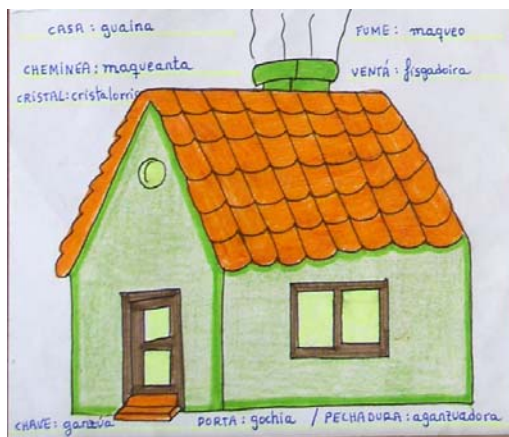 CASA: guaina
FUME: maqueo
CHEMINEA: maqueanta
VENTÁ: fisgadoira
CRISTAL: cristalorrio
CHAVE: ganzúa
PORTA: gochia / PECHADURA: aganzuadora